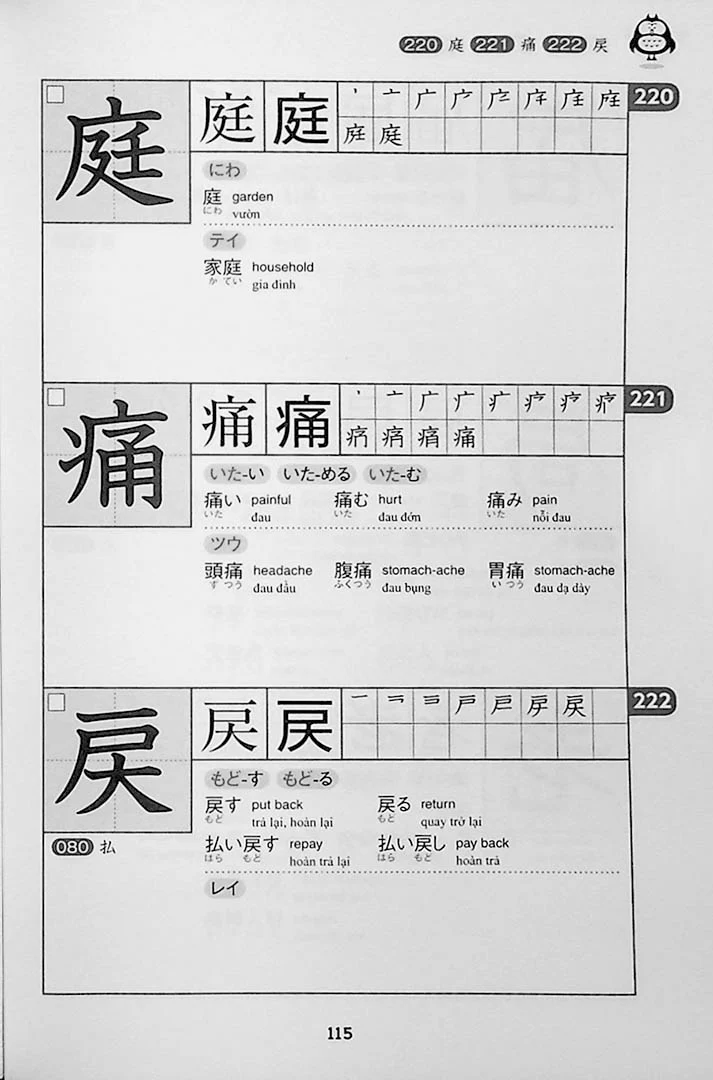 220 庭 221 痛 222 戻
庭 庭 庭 220
庭 庭
にわ
庭 garden
にわ vườn
テイ
家庭 household
か てい gia đình
痛 痛 痛 221
痛
いた-い いた-める いた-む
痛い painful 痛む hurt 痛み pain
いた đau いた đau đớn いた nỗi đau
ツウ
頭痛 headache 腹痛 stomach-ache 胃痛 stomach-ache
ず つう đau đầu ふくつう đau bụng い つう đau dạ dày
戻 戻 戻 222
もど-す もど-る
戻す put back 戻る return
もど trả lại, hoàn lại もど quay trở lại
080 払
払い戻す repay 払い戻し pay back
はら もど hoàn trả lại はら もど hoàn trả
レイ
115